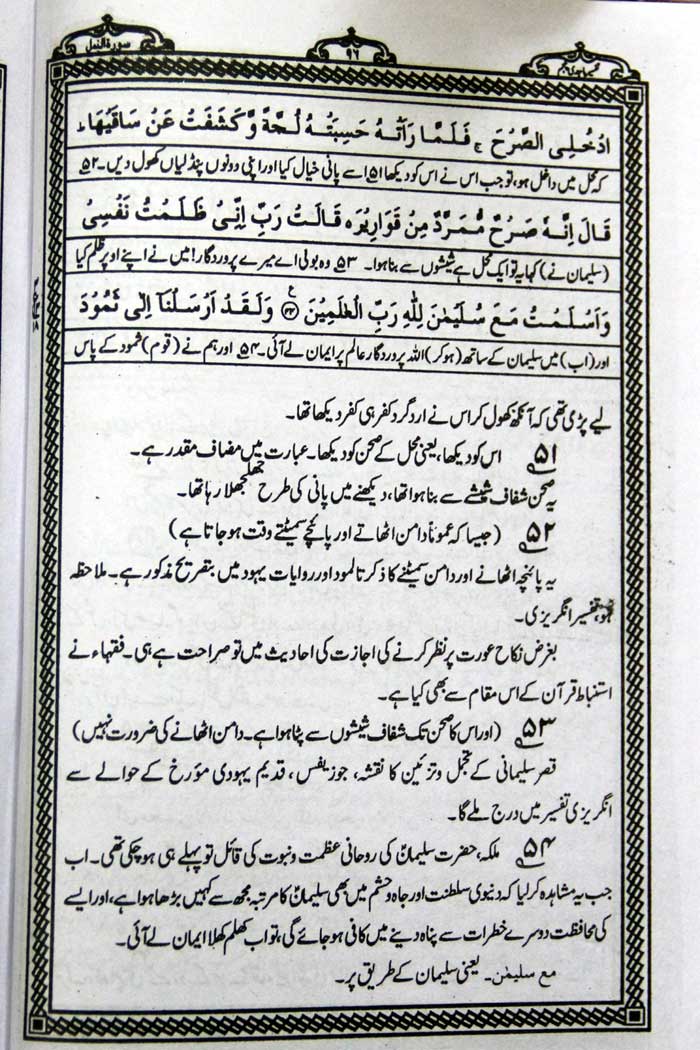 سورۃ النمل
۹۶
ادْخُلِی الصَّرْحَ ۚ فَلَمَّا رَاَتْهُ حَسِبَتْهُ لُجَّةً وَّ كَشَفَتْ عَنْ سَاقَيْهَا ؕ
کہ محل میں داخل ہو، تو جب اس نے اس کو دیکھا ۵۱ اسے پانی خیال کیا اور اپنی دونوں پنڈلیاں کھول دیں۔ ۵۲
قَالَ اِنَّهٗ صَرْحٌ مُّمَرَّدٌ مِّنْ قَوَارِيْرَ ؕ قَالَتْ رَبِّ اِنِّیْ ظَلَمْتُ نَفْسِیْ
(سلیمان نے) کہا یہ تو ایک محل ہے شیشوں سے بنا ہوا۔ ۵۳ وہ بولی اے میرے پروردگار! میں نے اپنے اوپر ظلم کیا
وَاَسْلَمْتُ مَعَ سُلَيْمٰنَ لِلّٰهِ رَبِّ الْعٰلَمِيْنَ ﴿۴۴﴾ ع وَلَقَدْ اَرْسَلْنَاۤ اِلٰی ثَمُوْدَ
اور (اب) میں سلیمان کے ساتھ (ہو کر) اللہ پروردگار عالم پر ایمان لے آئی۔ ۵۴ اور ہم نے (قوم) ثمود کے پاس
لیے پڑی تھی کہ آنکھ کھول کر اس نے ارد گرد کفر ہی کفر دیکھا تھا۔
۵۱ اس کو دیکھا، یعنی محل کے صحن کو دیکھا۔ عبارت میں مضاف مقدر ہے۔
یہ صحن شفاف شیشے سے بنا ہوا تھا، دیکھنے میں پانی کی طرح جھلجھلا رہا تھا۔
۵۲ (جیسا کہ عموماً دامن اٹھاتے اور پائنچے سمیٹتے وقت ہو جاتا ہے)
یہ پائنچہ اٹھانے اور دامن سمیٹنے کا ذکر تالمود اور روایات یہود میں بتصریح مذکور ہے۔ ملاحظہ
ہو، تفسیر انگریزی۔
بغرض نکاح عورت پر نظر کرنے کی اجازت کی احادیث میں تو صراحت ہے ہی۔ فقہاء نے
استنباط قرآن کے اس مقام سے بھی کیا ہے۔
۵۳ (اور اس کا صحن تک شفاف شیشوں سے پٹا ہوا ہے۔ دامن اٹھانے کی ضرورت نہیں)
قصر سلیمانی کے تجمل و تزئین کا نقشہ، جوزیفس، قدیم یہودی مؤرخ کے حوالے سے
انگریزی تفسیر میں درج ملے گا۔
۵۴ ملکہ، حضرت سلیمانؑ کی روحانی عظمت و نبوت کی قائل تو پہلے ہی ہو چکی تھی۔ اب
جب یہ مشاہدہ کر لیا کہ دنیوی سلطنت اور جاہ و حشم میں بھی سلیمانؑ کا مرتبہ مجھ سے کہیں بڑھا ہوا ہے، اور ایسے
کی محافظت دوسرے خطرات سے پناہ دینے میں کافی ہو جائے گی، تو اب کھلم کھلا ایمان لے آئی۔
مع سلیمٰن۔ یعنی سلیمان کے طریق پر۔